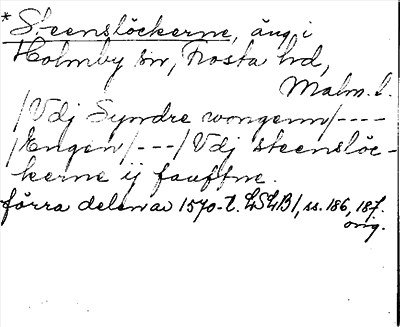 *Steenslöckerne, äng i
Holmby sn, Frosta hd,
Malm. l.
/Vdj Syndre wongenn/----
/Engen/---/Vdj steenslöc-
kerne ij fauffne.
förra delen av 1570-t. LSLB1, ss. 186, 187.
orig.